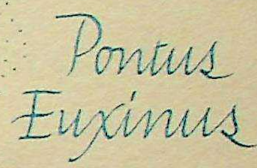 Pontus
Euxinus